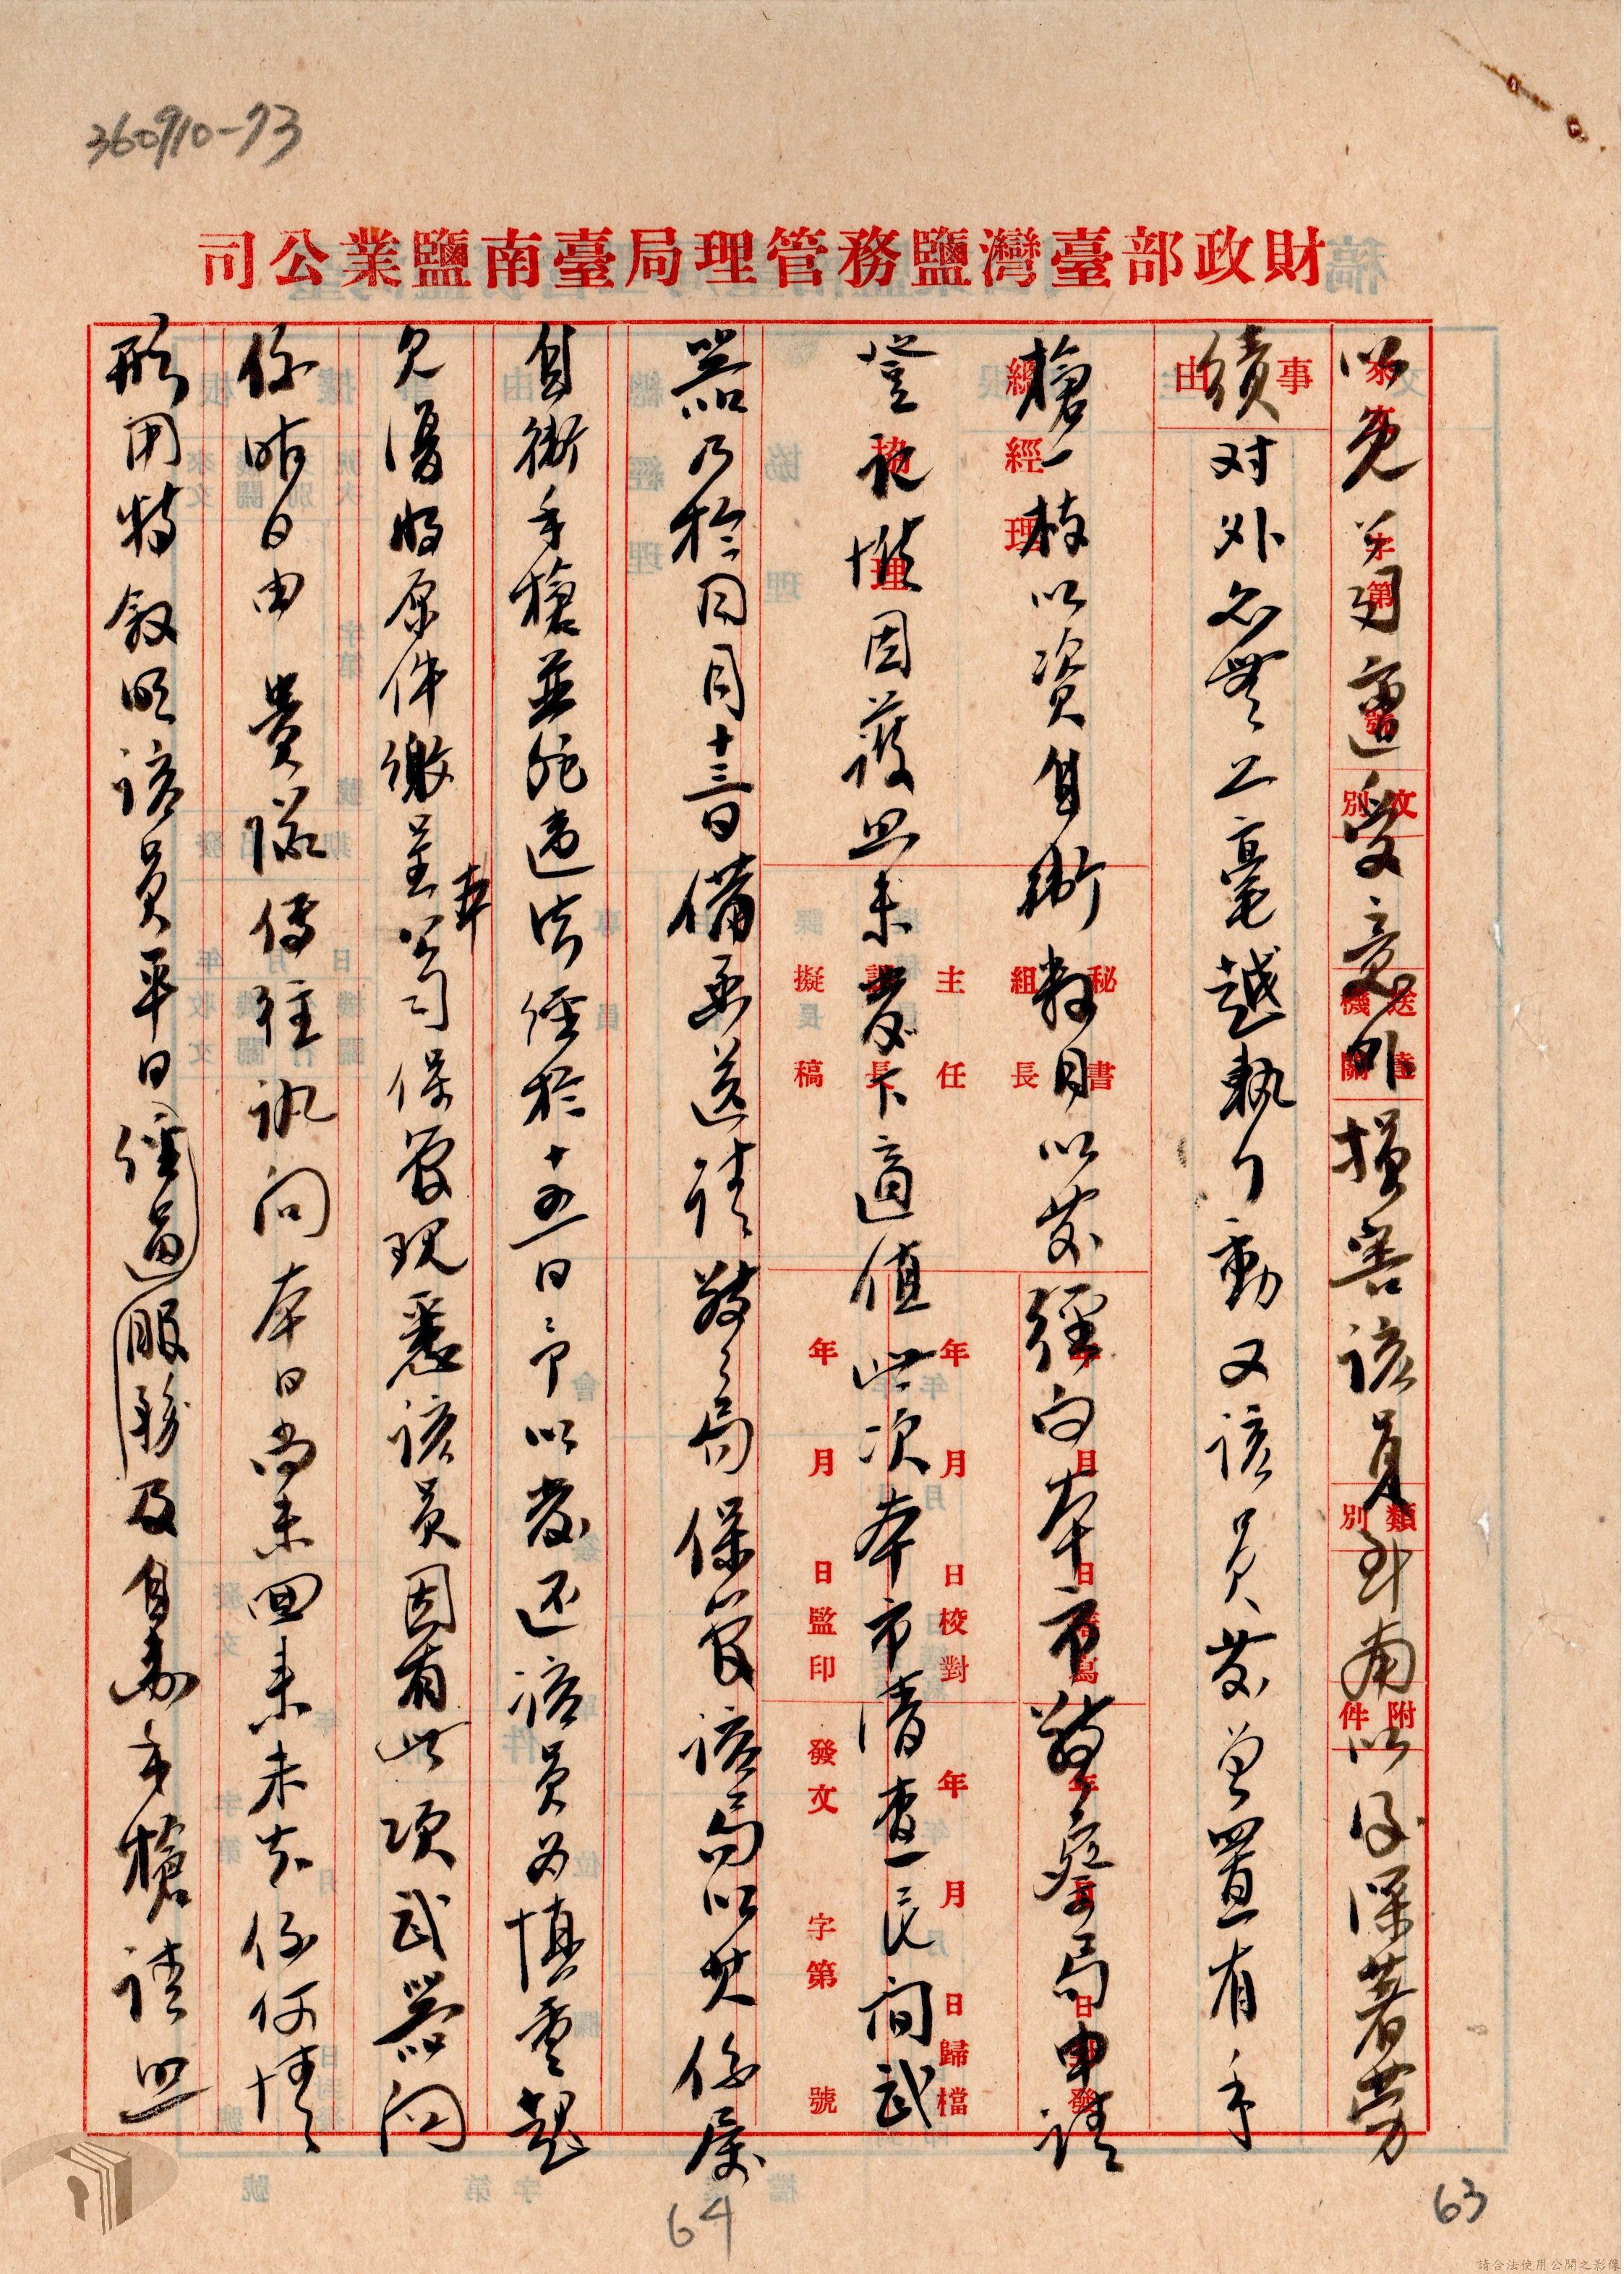 360910-73
財政部臺灣鹽務管理局臺南鹽業公司
以免並遭受意外損害該員到南以後深著勞
績对外亦無工毫越軌行動又該員前曾置有手
槍一枝以資自衛數月以前經向本市警察局申請
登記惟因護照未發下適值此次本市清查民间武
器乃於同月十三日備函送請警局保管該局以其係屬
自衛手槍並非違法經於十五日予以發还該員为慎重起
見復將原件繳呈本公司保管現悉該員因有此項武器问
係昨日由 貴隊傳往訊问本日尚未回来未知係何情
形用特敘明該員平日經過服務及自衛手槍請照
事由
文別
送達機關
類別
附件
總經理
協理
秘書
組長
主任
課長
擬稿
年月日監印
年月日校對
年月日歸檔
發文 字第 號
63
64
請合法使用公開之影像